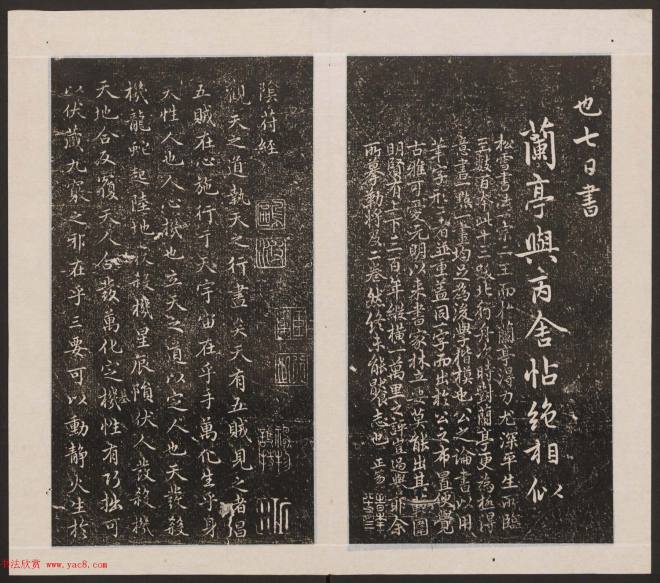 也七日書
蘭亭與丙舍帖絶相似
松雪書法一宗二王而於蘭亭得力尤深平生所臨
王數百本此十三跋北行舟次時對蘭亭更為極得
意書一點一畫均足為後學楷模也公之論書以用
筆字形二者並重蓋同一字而出於公之布置便覺
古雅可愛元明以來書家林立要莫能出其範圍
明賢有上下三百年縱橫一萬里之許豈過譽耶余
所摹勒將及二卷然終未能饜志也
陰符經
觀天之道執天之行盡矣天有五賊見之者昌
五賊在心施行于天宇宙在乎手萬化生乎身
天性人也人心機也立天之道以定人也天發殺
機龍蛇起陸地發殺機星辰隕伏人發殺機
天地合反覆天人合發萬化定機性有巧拙可
以伏藏九竅之邪在乎三要可以動靜火生於
书法欣赏 www.yac8.com